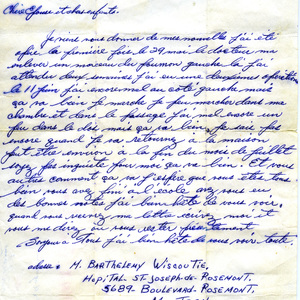 Chère Epouse et chers enfants.
Je veux vous donner de mes nouvelles j'ai été
opéré la première fois le 29 mai le docteur ma
enlever un morceau du poumon gauche la j'ai
attendu deux semaines j'ai eu une deuxièmes opération
le 11 juin j'ai encore mal au coté gauche mais
ça va bien je marche je peu marcher dans ma
chambre et dans le passage j'ai mal encore un
peu dans le dos mais ça va bien. Je sais pas
encore quand je va retournez à la maison
peut être environ à la fin du mois de juillet
soyez pas inquiète pour moé ça va bien. Et vous
autres comment ça va j'espère que vous êtes tous
bien vous avez fini l'école avez vous eu
des bonnes notes j'ai bien hâte de vous voir.
quand vous recevrez ma lettre écrivez moi et
vous me direz où vous rester présentement.
Bonjour à Tous j'ai bien hâte de vous voir toute.
M. Barthelemy Wiscoutie,
Hopital St. Joseph de Rosemont.
5689- Boulevard-Rosemont,